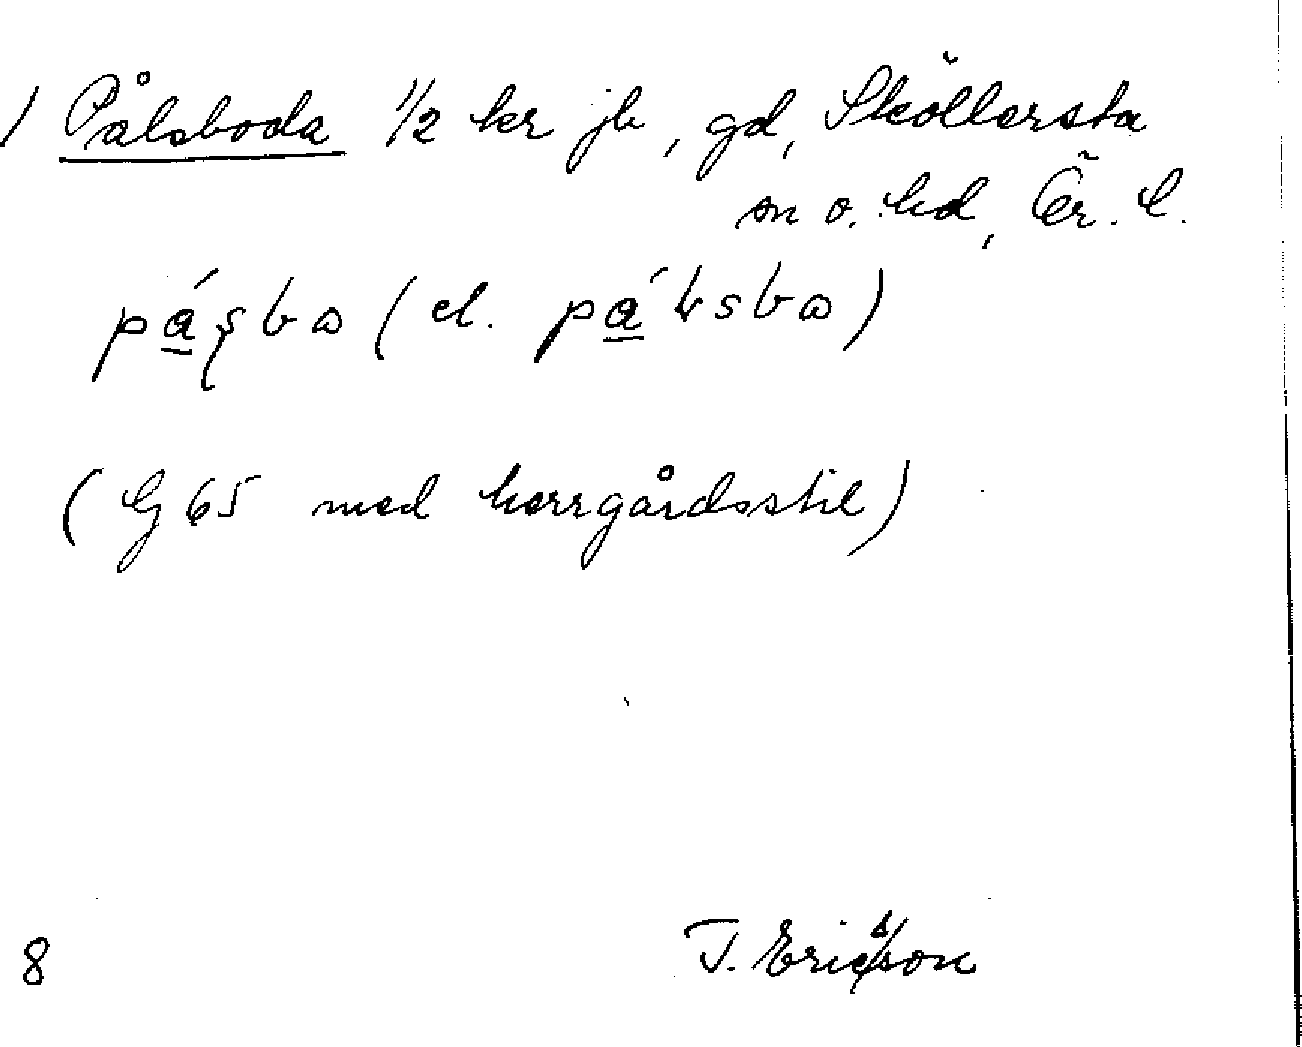 / Pålsboda 1/2 kr jb, gd, Sköllersta
sn o. hd, Ör. l.
(el.
(G 65 med herrgårdsstil)
8 T. Ericsson